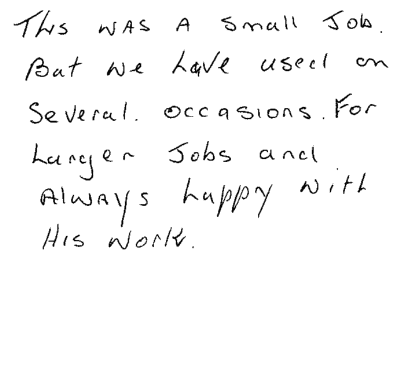 This was a small Job.
But we have used on
Several. occasions. For
Larger Jobs and
Always happy with
His work.